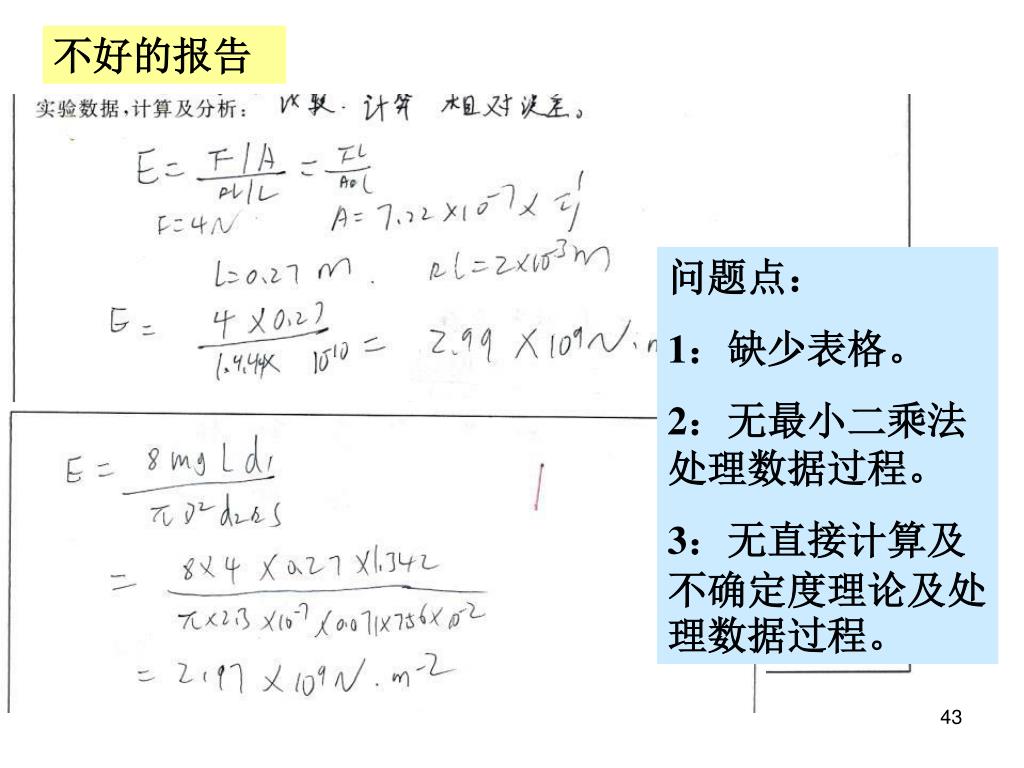 不好的报告
实验数据,计算及分析: 比较. 计算 相对误差。
E = F/A / ΔL/L = FL / AΔL
F=4N A=7.22×10^-7 ×
L=0.27 m. ΔL=2×10^-3 m
E = 4×0.27 / 1.444× 10^-10 = 2.99 ×10^9 N.
E = 8mgLd1 / πD^2d2ΔS
= 8×4×0.27×1.342 / π×2.3×10^-7×0.071×7.56×10^-2
= 2.97 ×10^9 N.m^-2
问题点:
1:缺少表格。
2:无最小二乘法
处理数据过程。
3:无直接计算及
不确定度理论及处
理数据过程。
43